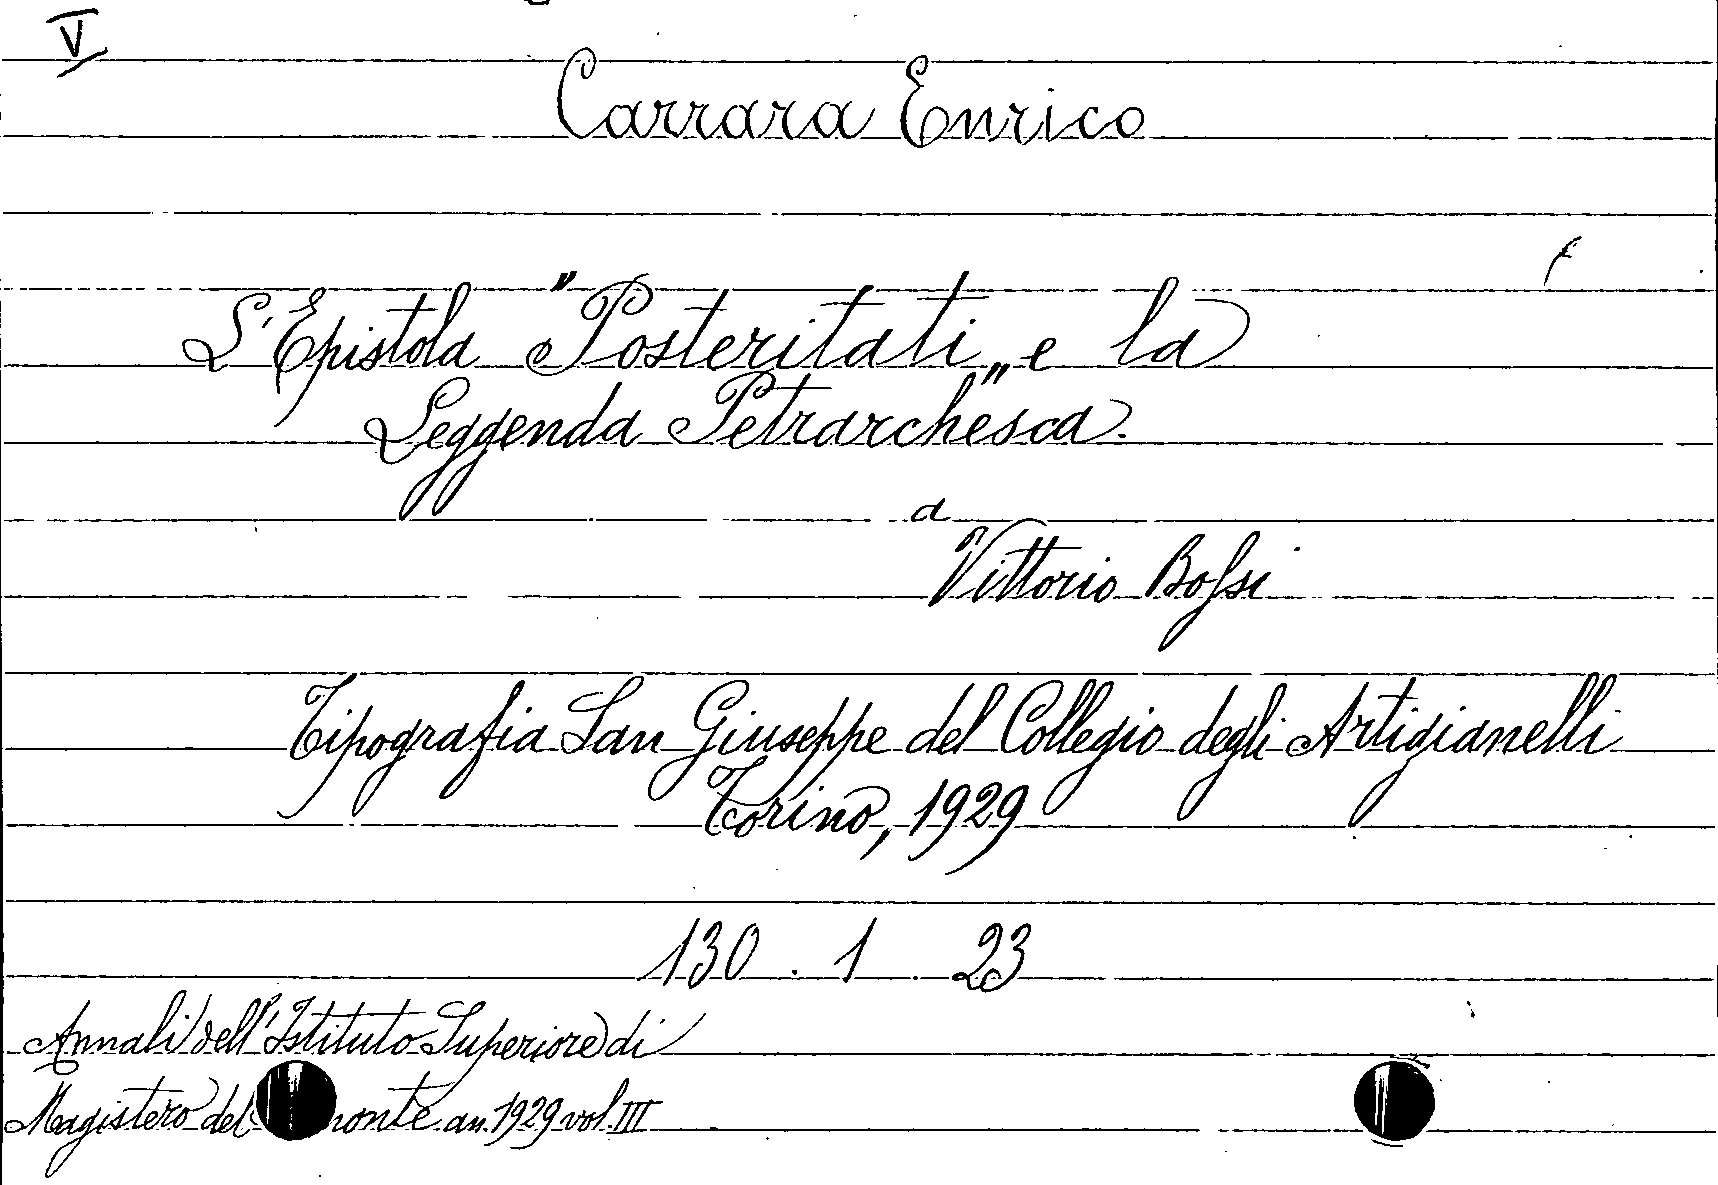 V
Carrara Enrico
L'Epistola "Posteritati„ e la
Leggenda Petrarchesca.
a
Vittorio Rossi
Tipografia San Giuseppe del Collegio degli Artigianelli
Torino, 1929
130 . 1 . 23
Annali dell'Istituto Superiore di
Magistero del monte an. 1929 vol. III